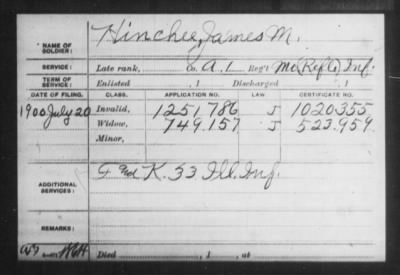 NAME OF SOLDIER: Hinchey, James M.
SERVICE: Late rank, Co. A, 1 Reg't Mo (Ref Co) Inf.
TERM OF SERVICE: Enlisted , 1 Discharged , 1
DATE OF FILING. CLASS. APPLICATION NO. LAW CERTIFICATE NO.
1900 July 20 Invalid, 1251.786 J 1020.355
Widow, 749.157 J 523.959
Minor,
ADDITIONAL SERVICES: K. 33 Ill. Inf.
REMARKS:
Died , 1 , at